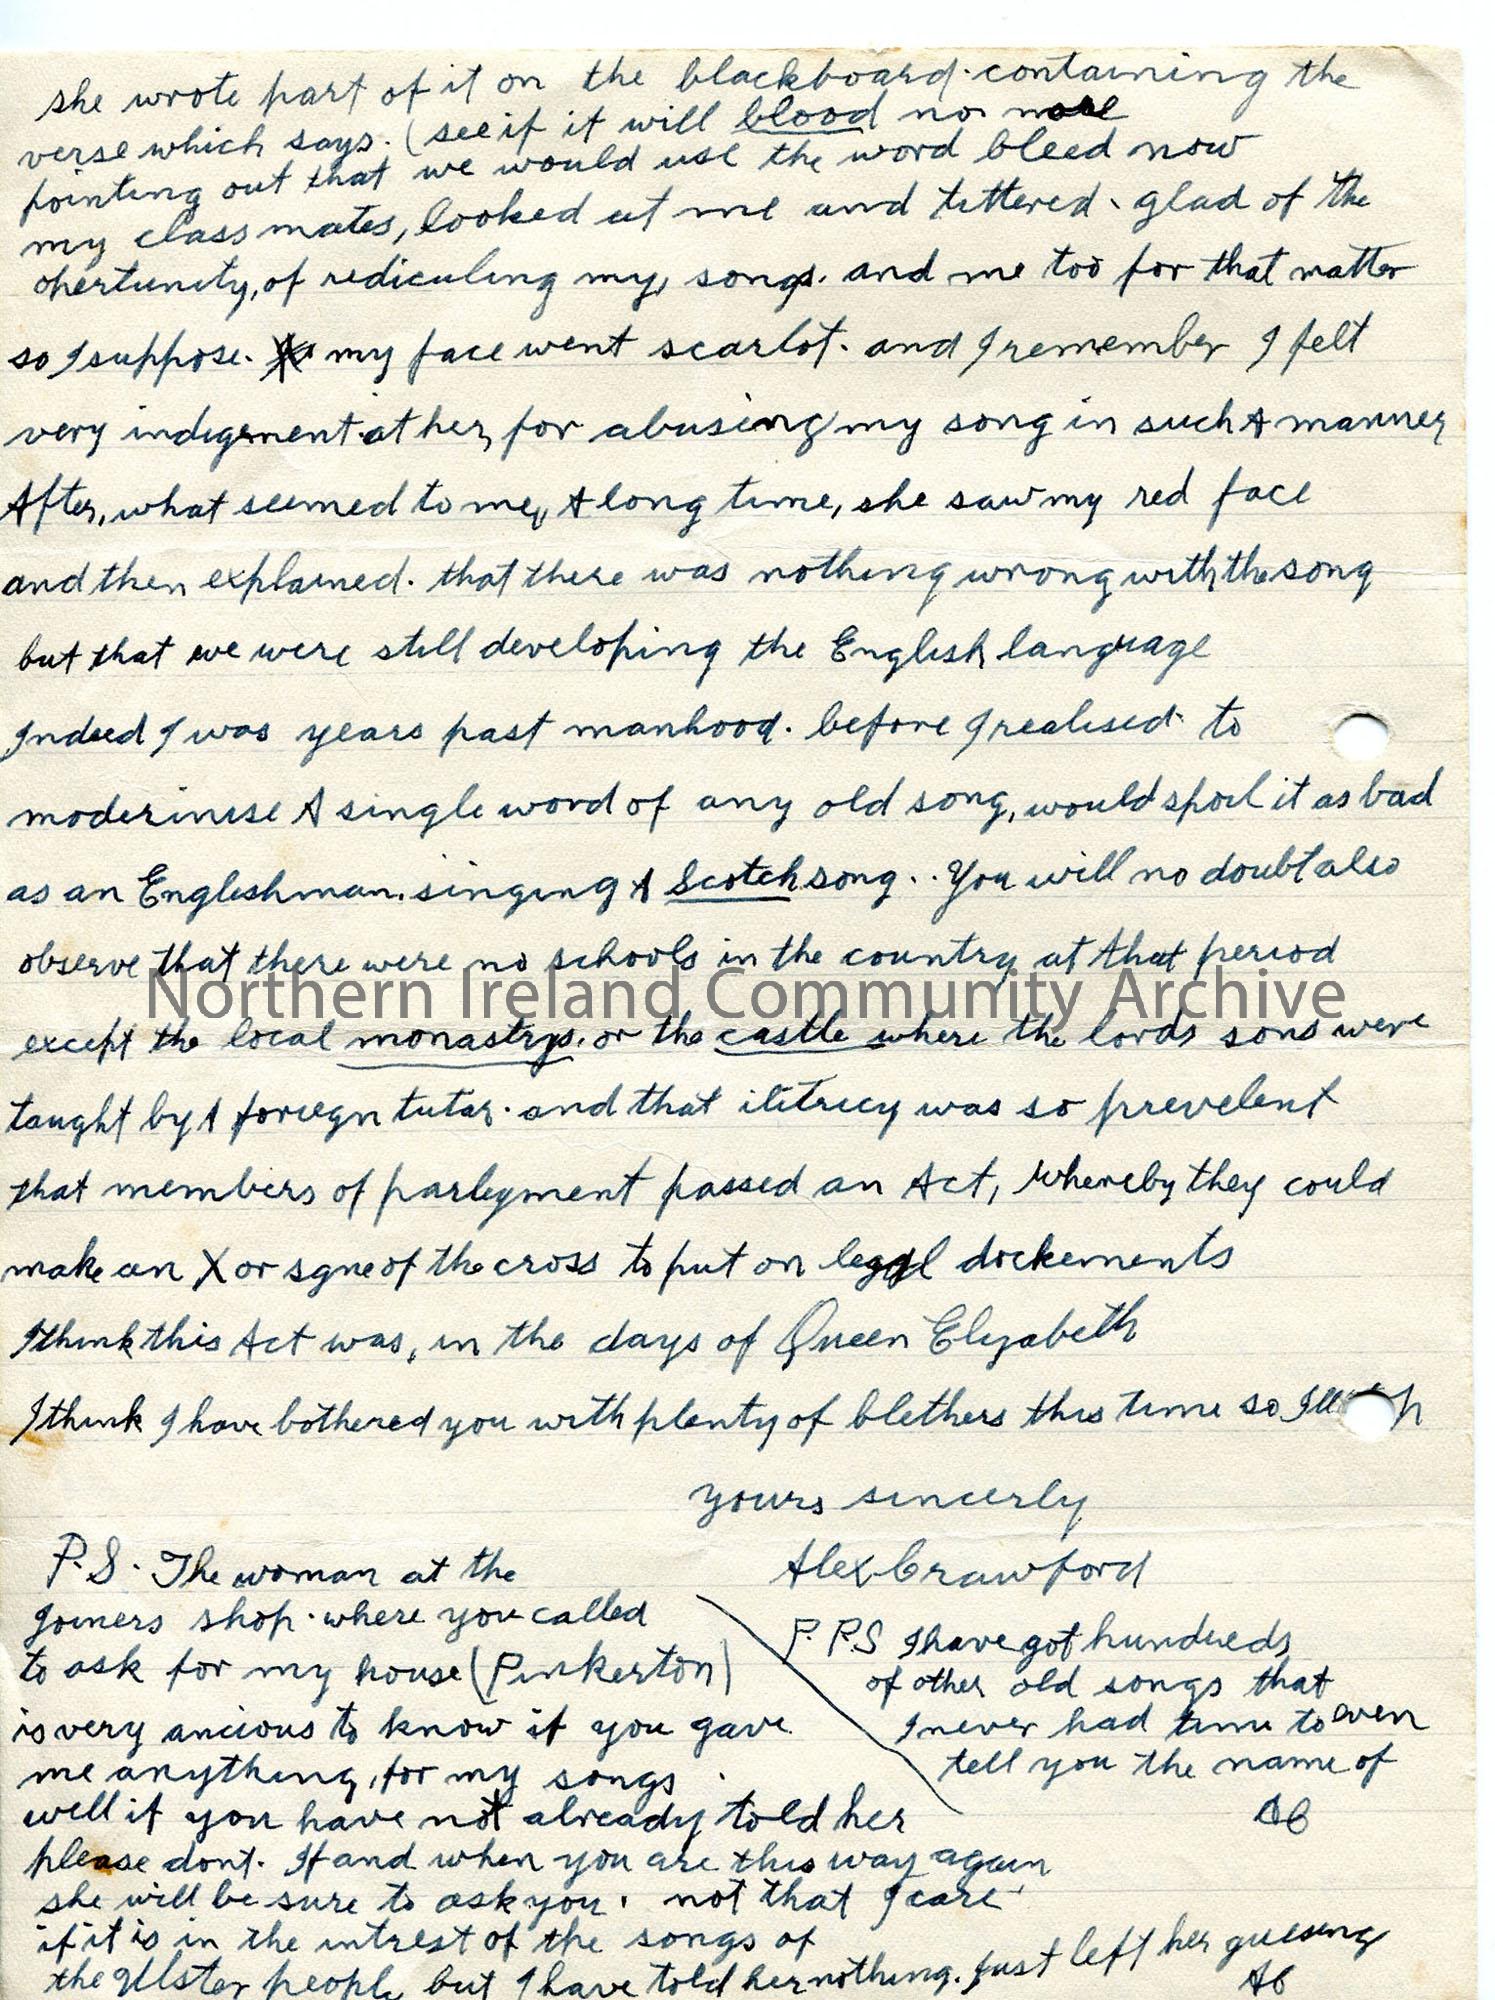 she wrote part of it on the blackboard. containing the
verse which says. (see if it will blood no more
pointing out that we would use the word bleed now
my class mates, looked at me and tittered. glad of the
opertunity, of rediculing my, songs. and me too for that matter
so I suppose. my face went scarlot. and I remember I felt
very indigement at her, for abusing my song in such A manner
After, what seemed to me, A long time, she saw my red face
and then explained. that there was nothing wrong with the song
but that we were still developing the English language
Indeed I was years past manhood. before I realised to
moderinise A single word of any old song, would spoil it as bad
as an Englishman. singing A Scotch song.. You will no doubt also
observe that there were no schools in the country at that period
Northern Ireland Community Archive
except the local monastrys. or the castle where the lords sons were
taught by A foriegn tutar. and that ilitricy was so prevelent
that members of parleyment passed an Act, whereby they could
make an X or sgne of the cross to put on legal dockements
I think this Act was, in the days of Queen Elyzabeth
I think I have bothered you with plenty of blethers this time so Ill
yours sincerly
Alex Crawford
P.S. The woman at the
Joiners shop. where you called
to ask for my house (Pinkerton)
is very ancious to know if you gave
me anything, for my songs.
well if you have not already told her
please dont. If and when you are this way again
she will be sure to ask you. not that I care
if it is in the intrest of the songs of
the Ulster people but I have told her nothing. Just left her guesing
AC
P.P.S I have got hundreds
of other old songs that
I never had time to even
tell you the name of
AC